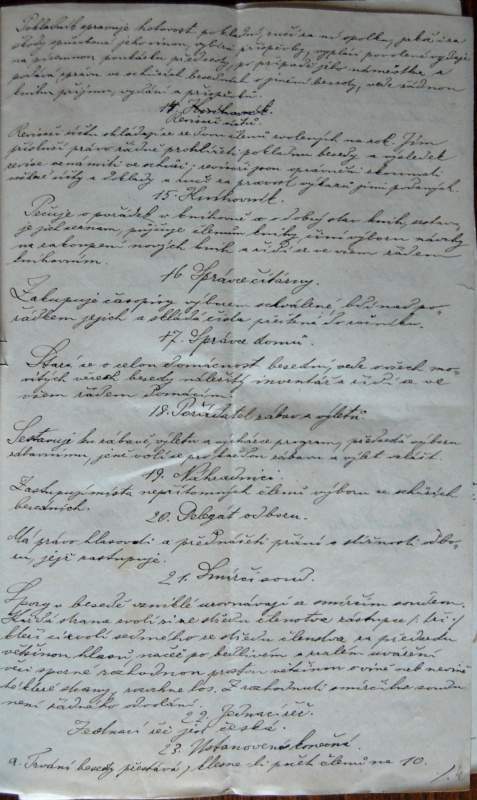 Pokladník spravuje hotovost pokladní, ručí za ni spolku, jakož i za
škody způsobené jeho vinou, vybírá příspěvky, vyplácí povolené výdaje
na písemnou poukázku předsedy, po případě jeho náměstka, a
podává zprávu ve schůzích besedních o jmění besedy, veda řádnou
knihu příjmu, vydání a příspěvků.
14. Knihovník.
Revisoři účtů.
Revisoři účtů skládající se ze dvou členů zvolených na rok. Jim
přísluší právo řádně prohlížeti pokladnu besedy a výsledek
revise oznámiti ve schůzi; revisoři jsou oprávněni zkoumati
veškeré účty a doklady a ručí za pravost výkazů jimi podaných.
15. Knihovník.
Pečuje o pořádek v knihovně a o dobrý stav knih, sestavu-
je její seznam, půjčuje členům knihy, činí výboru návrhy
na zakoupení nových knih a řídí se ve všem řádem
knihovním.
16. Správce čítárny.
Zakupuje časopisy výborem schválené, bdí nad po-
řádkem jejich a skládá čísla přečtená do ročníku.
17. Správce domu.
Stará se o celou domácnost besední, vede o všech mo-
vitých věcech besedy náležitý inventář a řídí se ve
všem řádem domácím.
18. Pořadatel zábav a výletů
Sestavuje ku zábavě, výletu a vycházce program, předsedá výboru
zábavnímu, jenž volí se pro každou zábavu a výlet zvlášť.
19. Náhradníci.
Zastupují místa nepřítomných členů výboru ve schůzích
besedních.
20. Delegát odboru.
Má právo hlasovati a přednášeti přání a stížnosti odbo-
ru, jejž zastupuje.
21. Smírčí soud.
Spory v besedě vzniklé urovnávají se smírčím soudem.
Každá strana zvolí si ze středu členstva zástupce /: tři :/
kteří si zvolí sedmého ze středu členstva za předsedu
většinou hlasů, načež po bedlivém a zralém uvážení
věci sporné rozhodnou prostou většinou o vině neb nevině
té které strany, rozvrhne los. Z rozhodnutí smírčího soudu
není žádného odvolání.
22. Jednací řeč.
Jednací řeč jest česká.
23. Ustanovení konečná.
a. Trvání besedy přestává, klesne-li počet členů na 10.